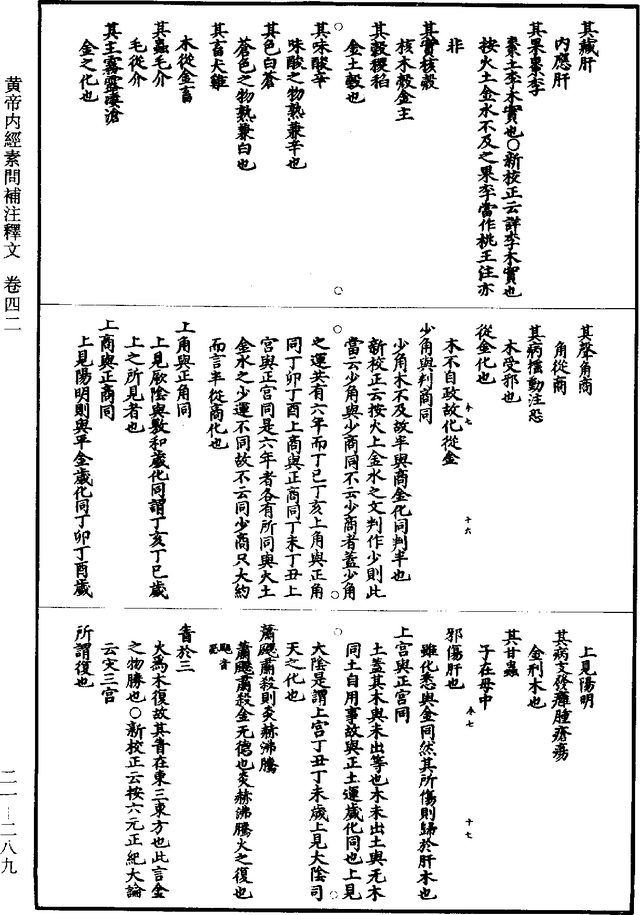 黄帝内經素問補注釋文　卷四二
二一—二八九
其藏肝
内應肝
其果棗李
棗土李木實也○新校正云詳李木實也
按火土金水不及之果李當作桃王注亦
非
其實核殼
核木殼金主
其穀稷稻
金土穀也
其味酸辛
味酸之物熟兼辛也
其色白蒼
蒼色之物熟兼白也
其畜犬雞
木從金畜
其蟲毛介
毛從介
其主霧露淒滄
金之化也
其聲角商
角從商
其病摇動注恐
木受邪也
從金化也
木不自政故化從金
少角與判商同
少角木不及故半與商金化同判半也
新校正云按火土金水之文判作少則此
當云少角與少商同不云少商者蓋少角
之運共有六年而丁巳丁亥上角與正角
同丁卯丁酉上商與正商同丁未丁丑上
宫與正宫同是六年者各有所同與火土
金水之少運不同故不云同少商只大約
而言半從商化也
上角與正角同
上見厥陰與敷和歲化同謂丁亥丁巳歲
上之所見者也
上商與正商同
上見陽明則與平金歲化同丁卯丁酉歲
卷七
十六
上見陽明
其病支發癰腫瘡瘍
金刑木也
其甘蟲
子在母中
邪傷肝也
雖化悉與金同然其所傷則歸於肝木也
上宫與正宫同
土蓋其木與未出等也木未出土與无木
同土自用事故與正土運歲化同也上見
太陰是謂上宫丁丑丁未歲上見大陰司
天之化也
蕭飋肅殺則炎赫沸騰
蕭飋肅殺金无德也炎赫沸騰火之復也
飋音
瑟
眚於三
火爲木復故其眚在東三東方也此言金
之物勝也○新校正云按六元正紀大論
云灾三宫
所謂復也
卷七
十七